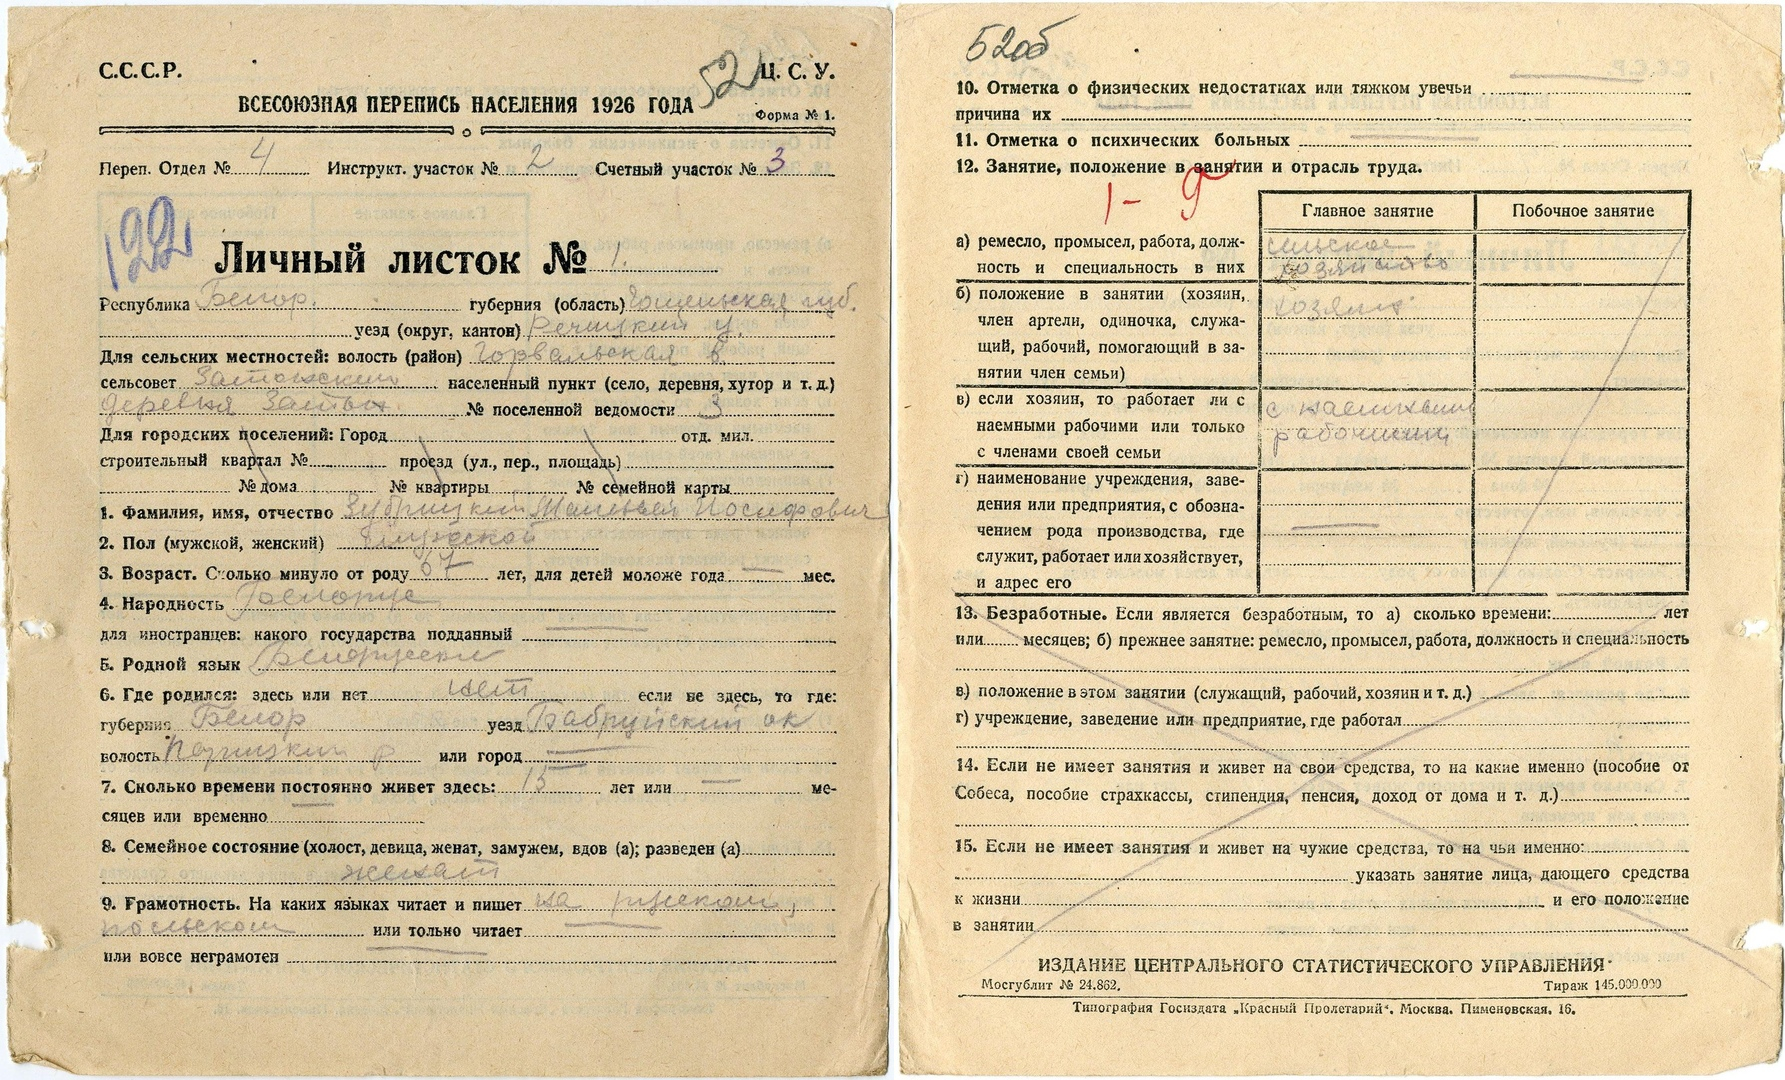 52
С.С.С.Р. Ц. С. У.
ВСЕСОЮЗНАЯ ПЕРЕПИСЬ НАСЕЛЕНИЯ 1926 ГОДА
Форма № 1.
Переп. Отдел № 4 Инструкт. участок № 2 Счетный участок № 3
122
Личный листок № 1.
Республика Белор. губерния (область) губ.
уезд (округ, кантон) Речицкий у.
Для сельских местностей: волость (район) Горвальская в.
сельсовет населенный пункт (село, деревня, хутор и т. д.)
деревня № поселенной ведомости 3
Для городских поселений: Город отд. мил.
строительный квартал № проезд (ул., пер., площадь)
№ дома № квартиры № семейной карты
1. Фамилия, имя, отчество Зубрицкий Иосифович
2. Пол (мужской, женский) Мужской
3. Возраст. Сколько минуло от роду 67 лет, для детей моложе года — мес.
4. Народность Белорус
для иностранцев: какого государства подданный
5. Родной язык Белорусский
6. Где родился: здесь или нет нет если не здесь, то где:
губерния Белор уезд Бабруйский ок
волость р или город
7. Сколько времени постоянно живет здесь: 15 лет или — ме-
сяцев или временно
8. Семейное состояние (холост, девица, женат, замужем, вдов (а); разведен (а)
женат
9. Грамотность. На каких языках читает и пишет на русском,
польском или только читает
или вовсе неграмотен
52об
10. Отметка о физических недостатках или тяжком увечьи
причина их
11. Отметка о психических больных
12. Занятие, положение в занятии и отрасль труда.
Главное занятие Побочное занятие
а) ремесло, промысел, работа, долж- сельское
ность и специальность в них хозяйство
б) положение в занятии (хозяин, хозяин
член артели, одиночка, служа-
щий, рабочий, помогающий в за-
нятии член семьи)
в) если хозяин, то работает ли с с наемными
наемными рабочими или только рабочими
с членами своей семьи
г) наименование учреждения, заве-
дения или предприятия, с обозна-
чением рода производства, где
служит, работает или хозяйствует,
и адрес его
13. Безработные. Если является безработным, то а) сколько времени: лет
или месяцев; б) прежнее занятие: ремесло, промысел, работа, должность и специальность
в) положение в этом занятии (служащий, рабочий, хозяин и т. д.)
г) учреждение, заведение или предприятие, где работал
14. Если не имеет занятия и живет на свои средства, то на какие именно (пособие от
Собеса, пособие страхкассы, стипендия, пенсия, доход от дома и т. д.)
15. Если не имеет занятия и живет на чужие средства, то на чьи именно:
указать занятие лица, дающего средства
к жизни и его положение
в занятии
ИЗДАНИЕ ЦЕНТРАЛЬНОГО СТАТИСТИЧЕСКОГО УПРАВЛЕНИЯ.
Мосгублит № 24.862. Тираж 145.000.000
Типография Госиздата „Красный Пролетарий“. Москва. Пименовская, 16.